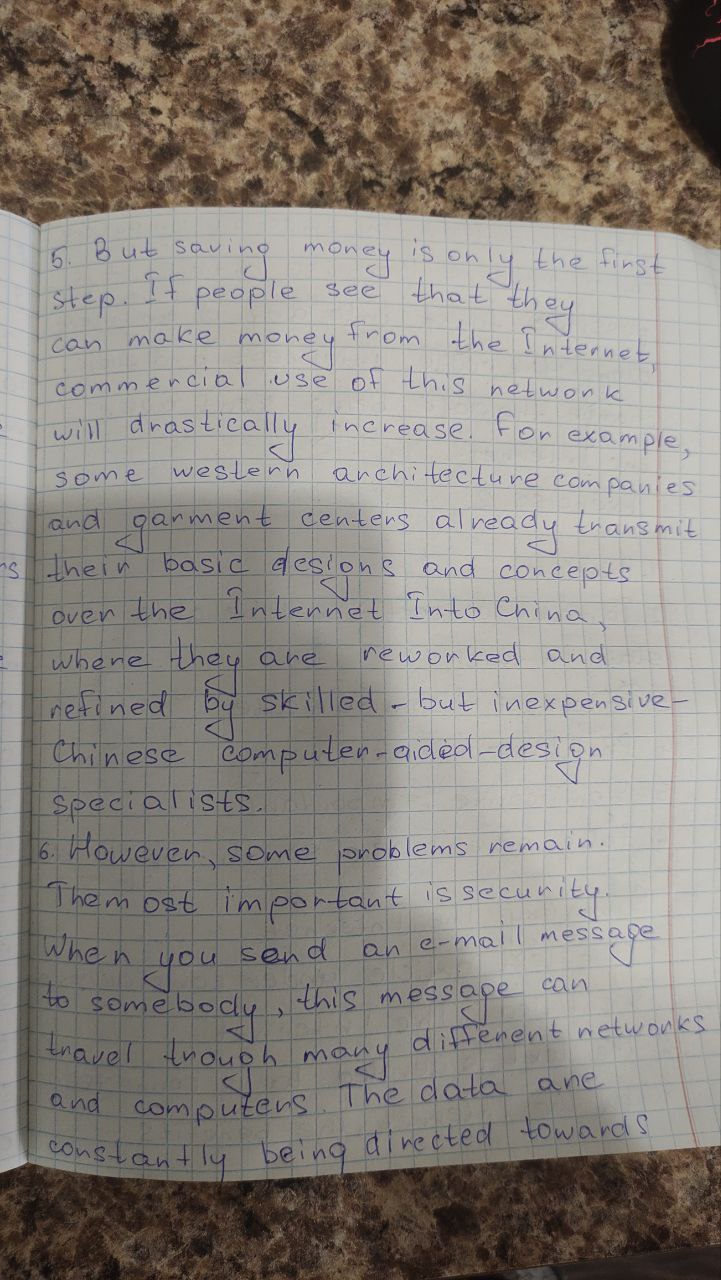 5. But saving money is only the first
step. If people see that they
can make money from the Internet,
commercial use of this network
will drastically increase. For example,
some western architecture companies
and garment centers already transmit
their basic designs and concepts
over the Internet Into China,
where they are reworked and
refined by skilled-but inexpensive-
Chinese computer-aided-design
specialists.
6. However, some problems remain.
The most important is security.
When you send an e-mail message
to somebody, this message can
travel trough many different networks
and computers. The data are
constantly being directed towards